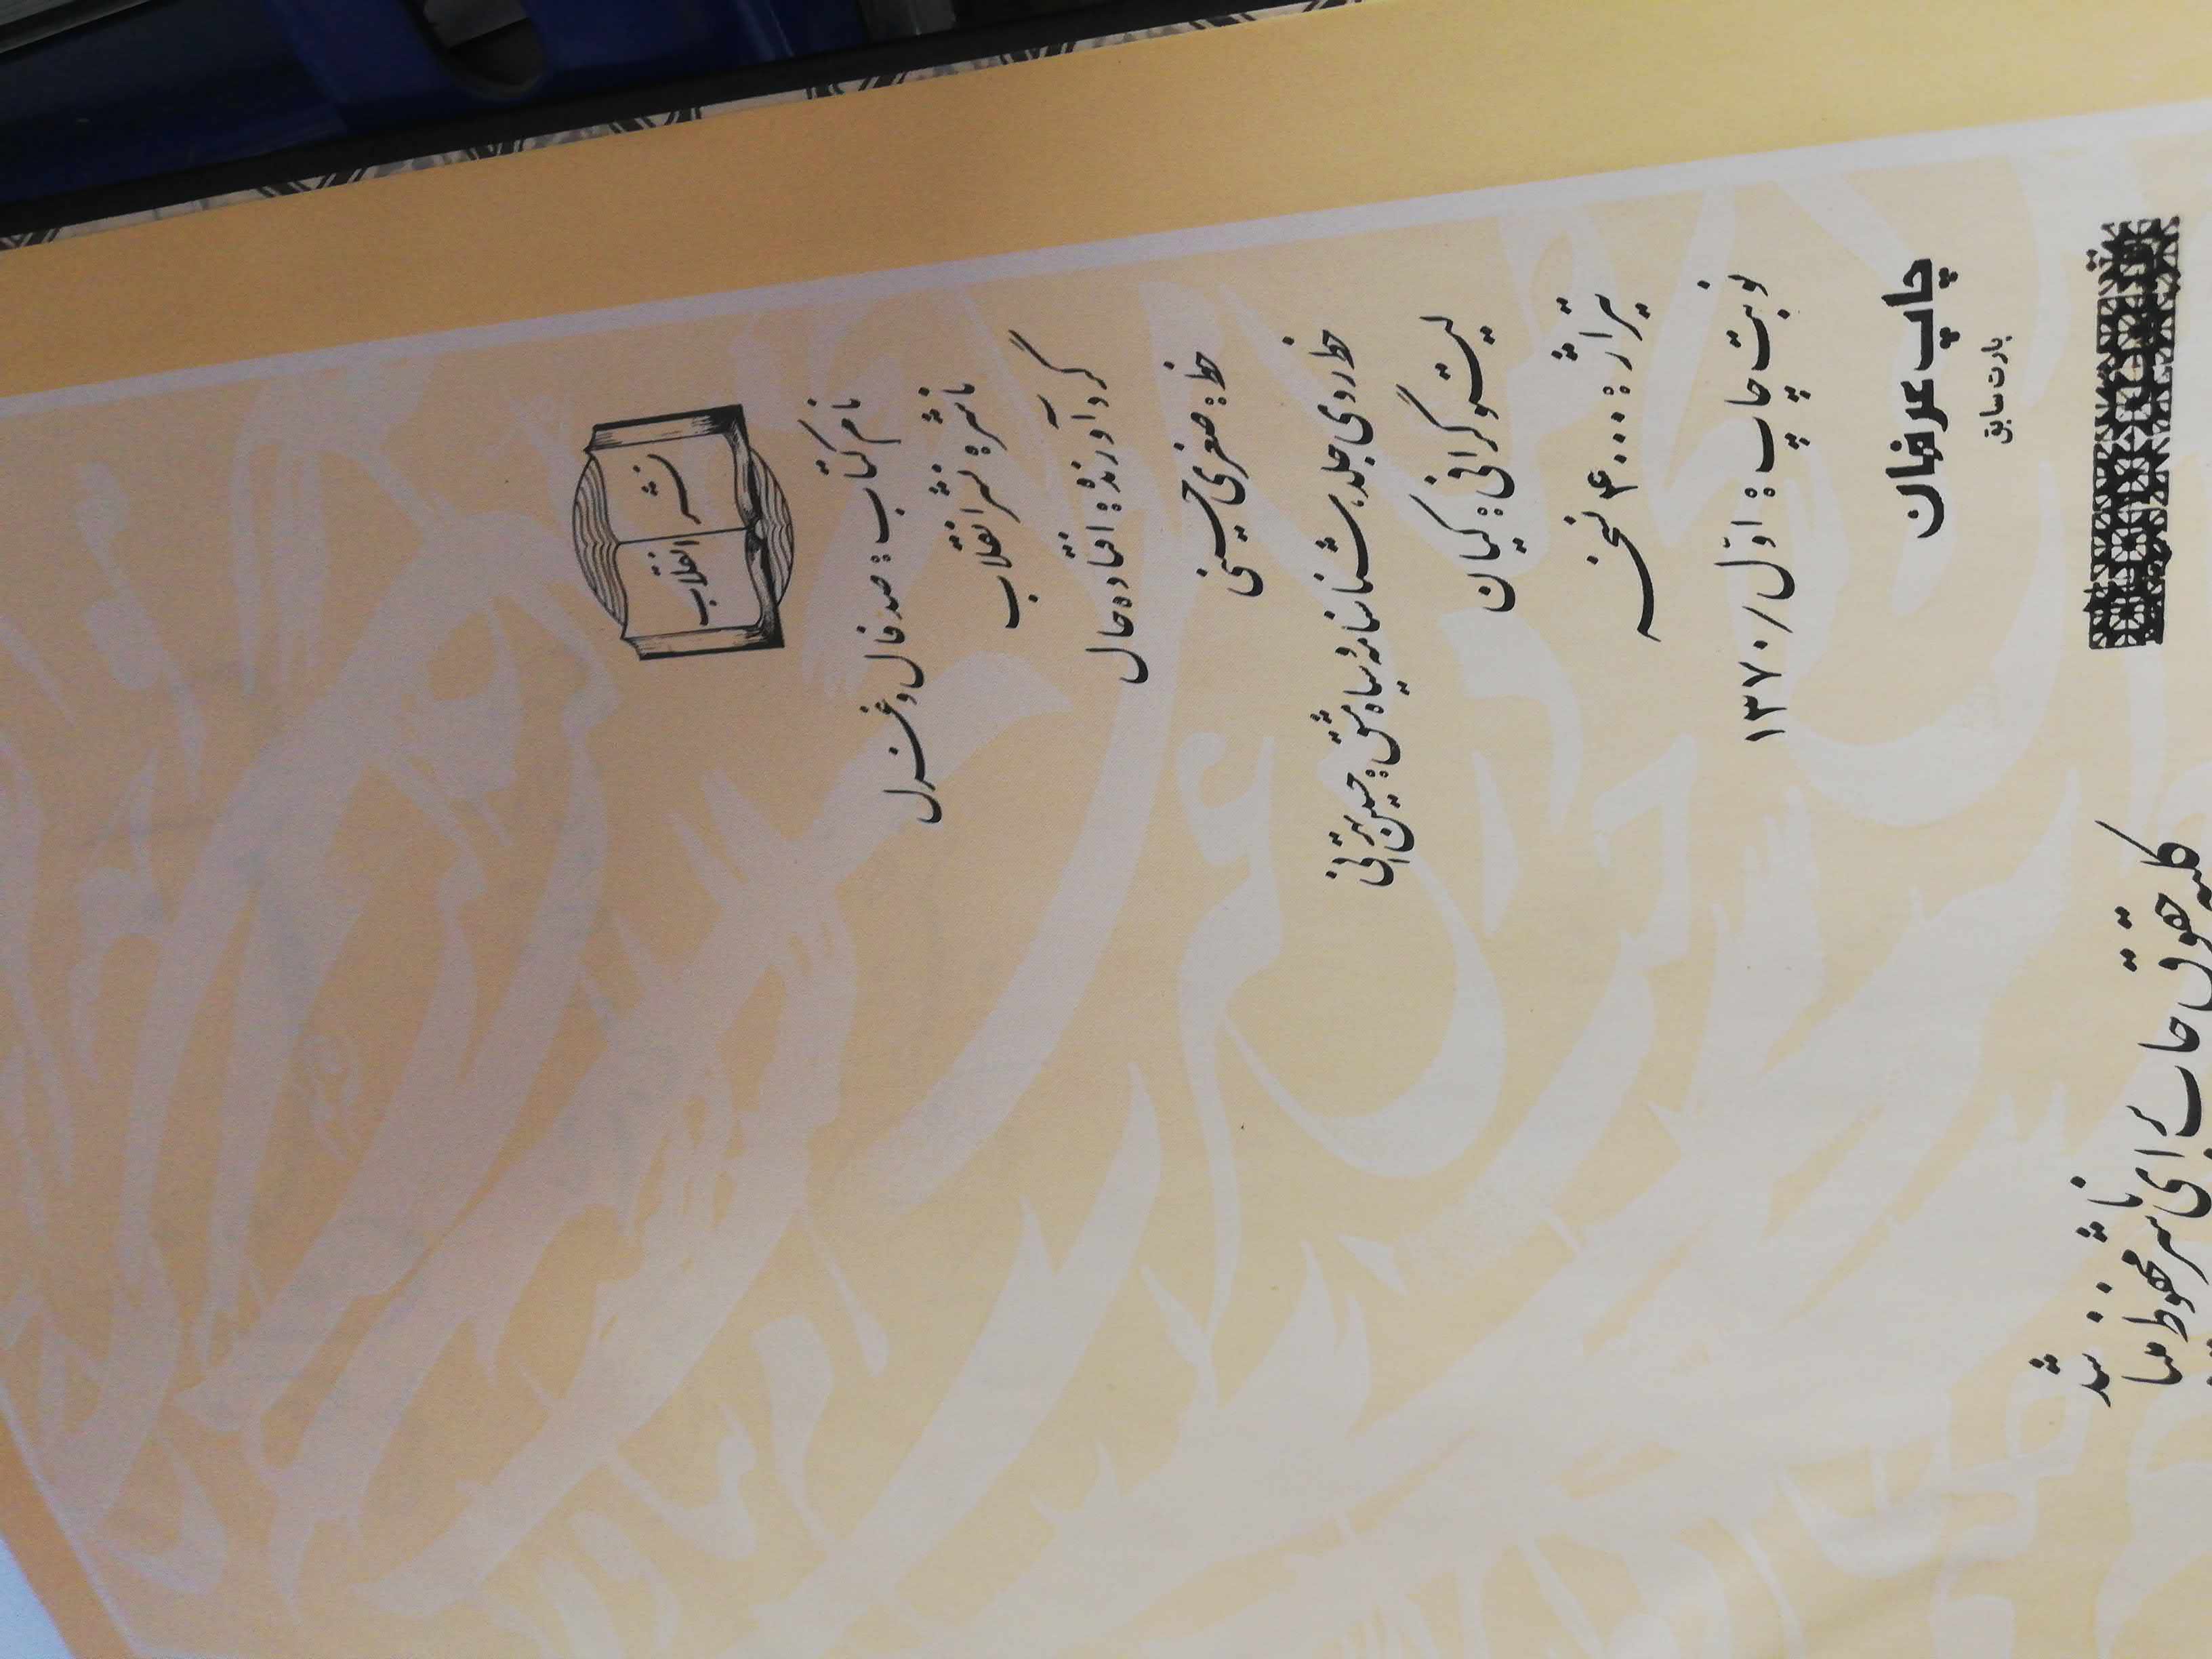 نشر
انقلاب
نام کتاب: صد فال و غزل
ناشر: نشر انقلاب
گردآورنده: افتاده حال
خط: صفری حسینی
خط روی جلد، شناسنامه و سیاه مشق:
لیتوگرافی: کیان
تیراژ: ۴۰۰۰ نسخه
نوبت چاپ: اول / ۱۳۷۰
چاپ عرفان
بادت سابق
کلیه حقوق چاپ برای ناشر محفوظ میباشد